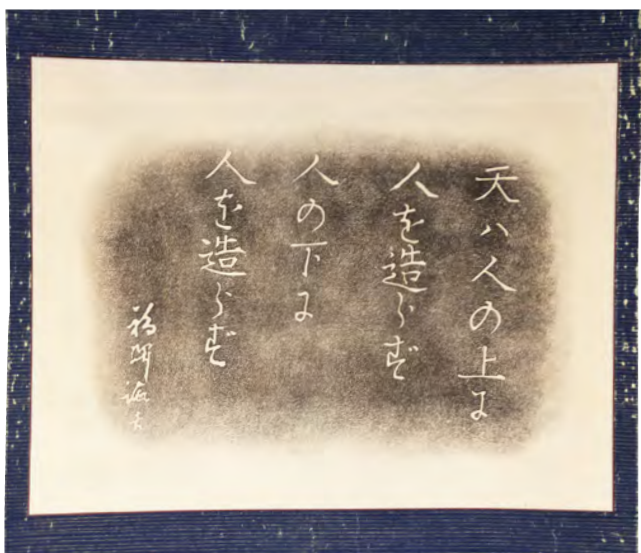 天ハ人の上に
人を造らず
人の下に
人を造らず
福澤諭吉